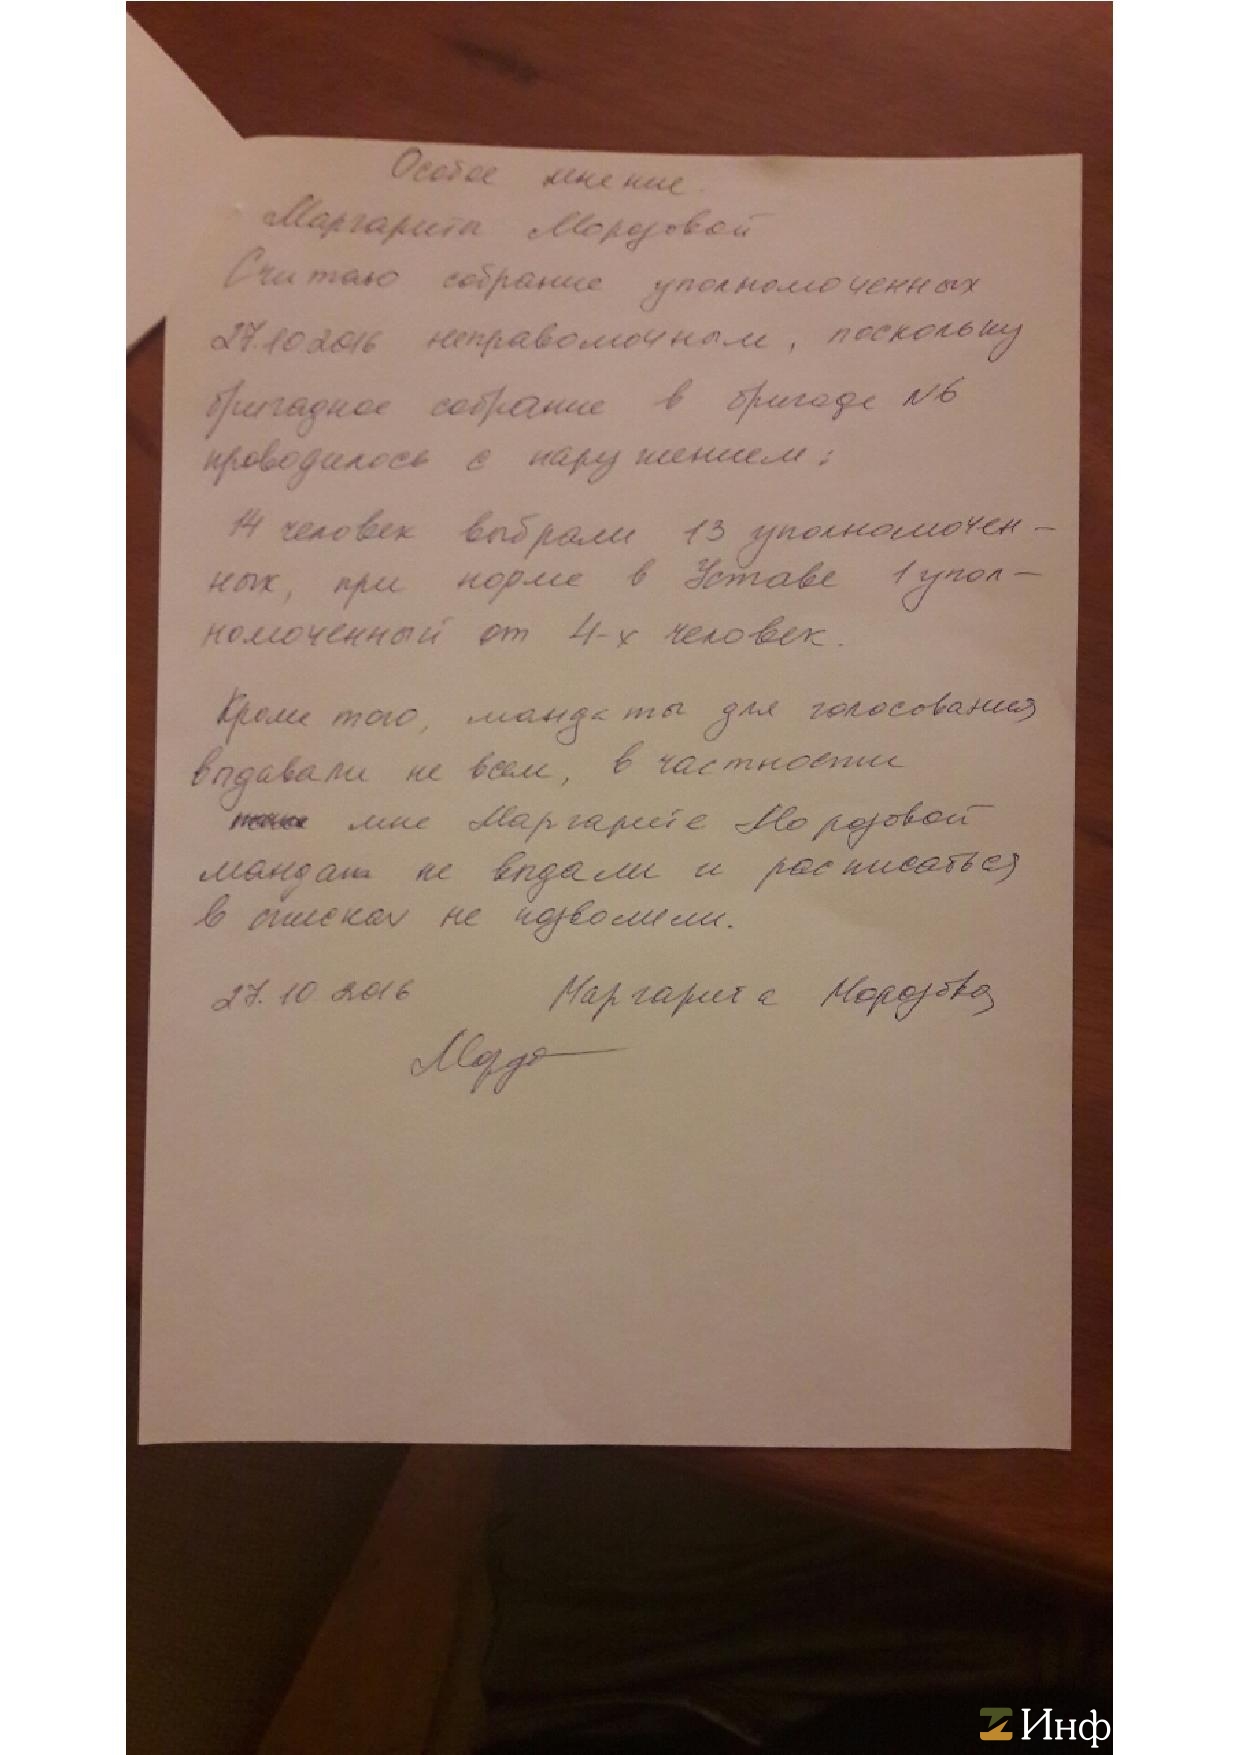 Особое мнение.
Маргариты Морозовой
Считаю собрание уполномоченных
27.10 2016 неправомочным, поскольку
бригадное собрание в бригаде №6
проводилось с нарушением:
14 человек выбрали 13 уполномочен-
ных, при норме в Уставе 1 упол-
номоченный от 4-х человек.
Кроме того, мандаты для голосования
выдавали не всем, в частности
мне Маргарите Морозовой
мандат не выдали и расписаться
в списках не позволили.
27.10 2016 Маргарита Морозова
Инф